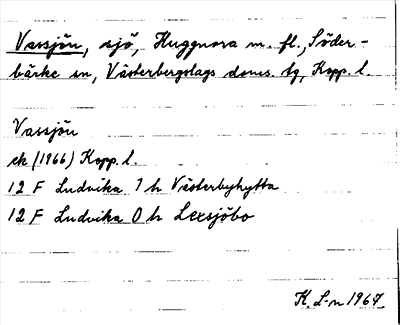 Vassjön, sjö, Huggnora m. fl., Söder-
bärke sn, Västerbergslags doms. tg, Kopp. l.
Vassjön
ek (1966) Kopp. l.
12 F Ludvika 1 h Västerbyhytta
12 F Ludvika 0 h Lexsjöbo
K. L-n 1967